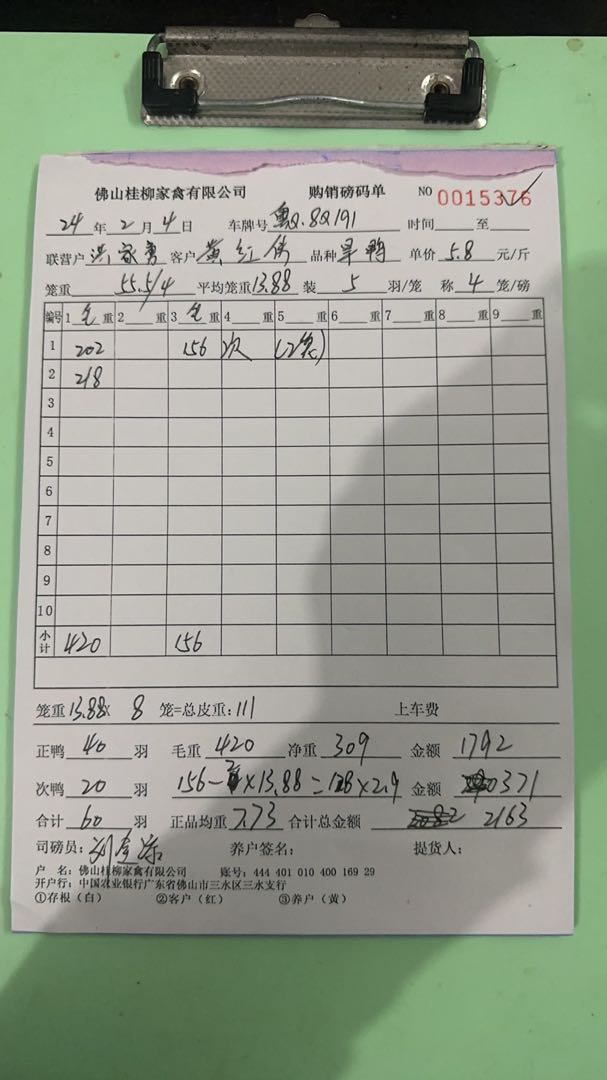 佛山桂柳家禽有限公司 购销磅码单 NO 0015376
24年2月4日 车牌号粤Q.8Q191 时间 至
联营户 洪家 客户 黄红伟 品种旱鸭 单价5.8元/斤
笼重55.5/4 平均笼重13.88装5羽/笼 称4笼/磅
编号 1毛重 2重 3毛重 4重 5重 6重 7重 8重 9重
1 202 156 次 (2笼)
2 218
3
4
5
6
7
8
9
10
小计 420 156
笼重13.88x 8 笼=总皮重:111 上车费
正鸭40羽 毛重420 净重309 金额1792
次鸭20羽 156-2x13.88=128x2.9 金额371
合计60羽 正品均重7.73 合计总金额2163
司磅员: 养户签名: 提货人:
户 名: 佛山桂柳家禽有限公司 账号: 444 401 010 400 169 29
开户行: 中国农业银行广东省佛山市三水区三水支行
①存根(白) ②客户(红) ③养户(黄)